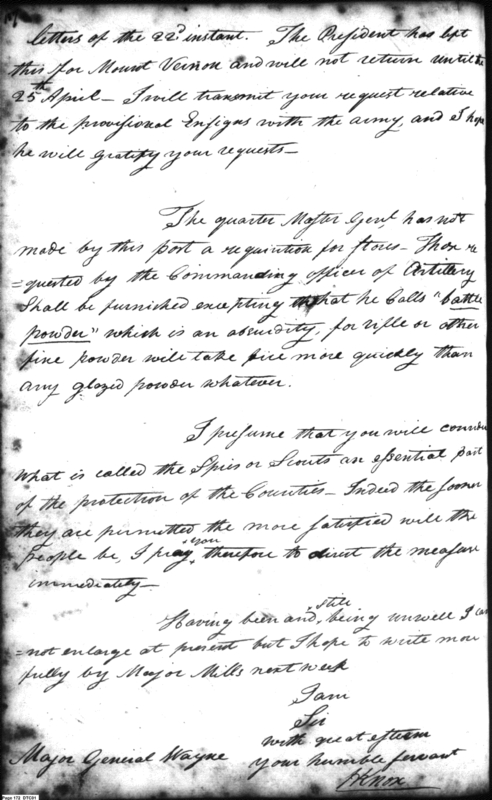 letters of the 22d instant. The President has left
this for Mount Vernon and will not return until the
25th April — I will transmit your request relative
to the provisional Ensigns with the army and I hope
he will gratify your requests —
The quarter Master Genl. has not
made by this post a requisition for stores — Those re
=quested by the Commanding officer of Artillery
Shall be furnished excepting that he Calls "battle
powder" which is an absurdity, for rifle or other
fine powder will take fire more quickly than
any glazed powder whatever.
I presume that you will consider
What is called the Spies or Scouts an essential part
of the protection of the Counties — Indeed the sooner
they are permitted the more satisfied will the
people be, I pray you therefore to direct the measure
immediately —
Having been and still being unwell I can
=not enlarge at present but I hope to write more
fully by Major Mills next week
I am
Sir
with great esteem
your humble servant
Major General Wayne
HKnox
Page 172 DTC01